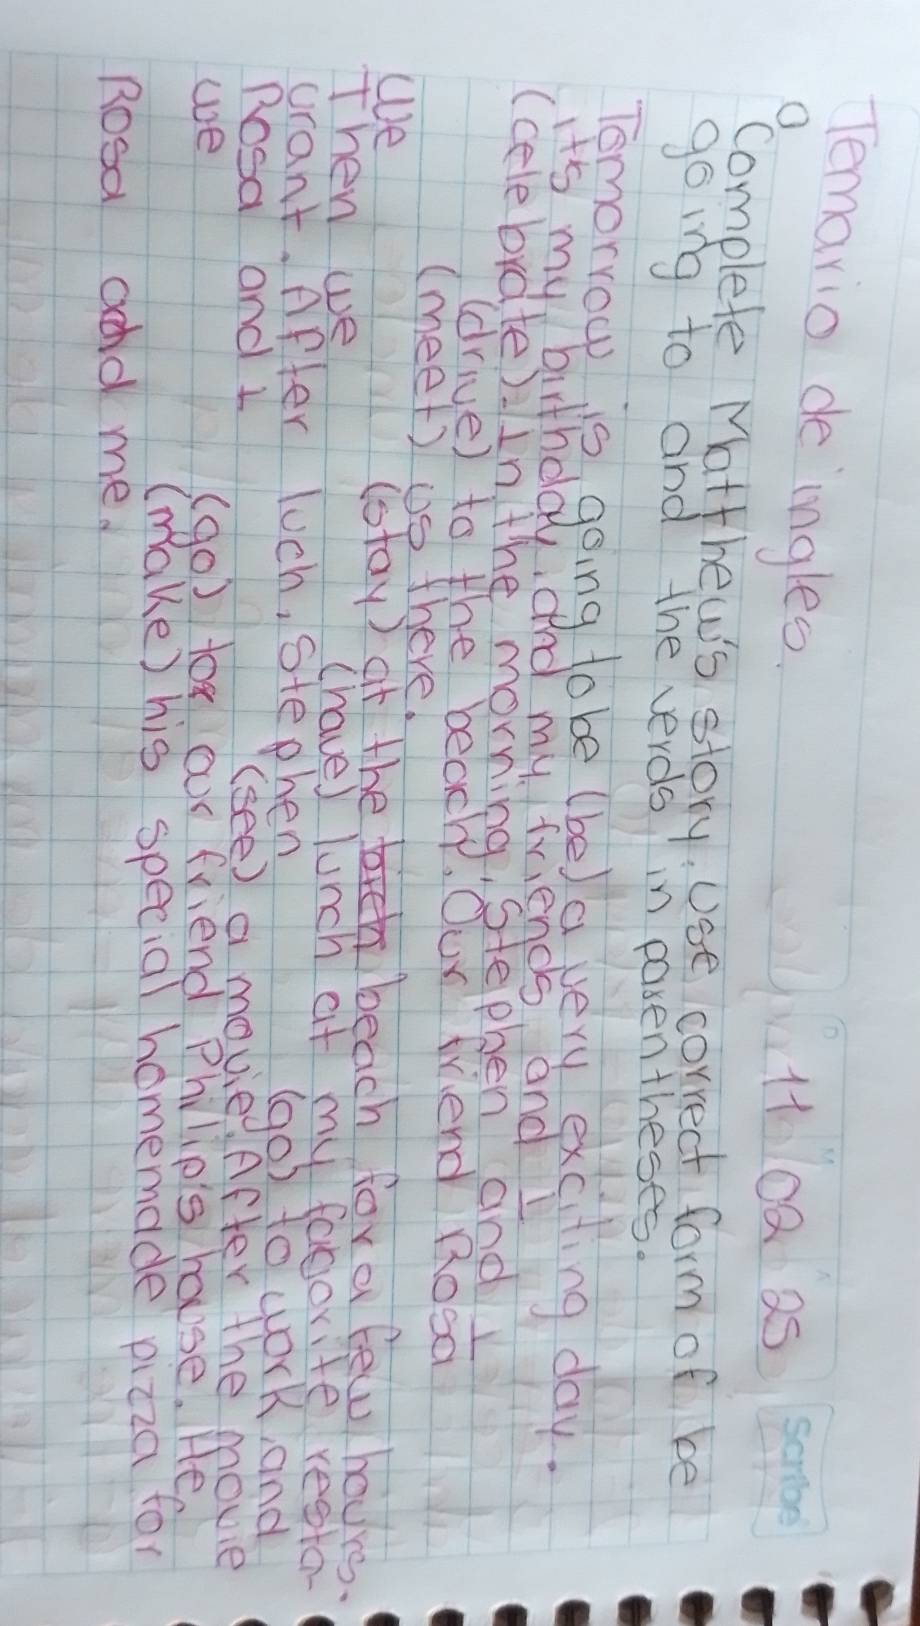 Temario de ingles. 11 02 25 Scribe
D M A
a
Complete Matthew's story. Use correct form of be
going to and the verds in parentheses.
Tomorrow is going to be (be) a very exciting day.
it's my birthday, and my friends and I
(celebrate). In the morning, Stephen and I
(drive) to the beach. Our friend Rosa
(meet) us there.
We (stay) at the beach for a few hours.
Then we (have) lunch at my fagorite resta-
urant. After luch, Stephen (go) to work, and
Rosa and I (see) a movie. After the movie
we (go) to our friend Philip's house. He
(make) his special homemade pizza for
Rosa and me.